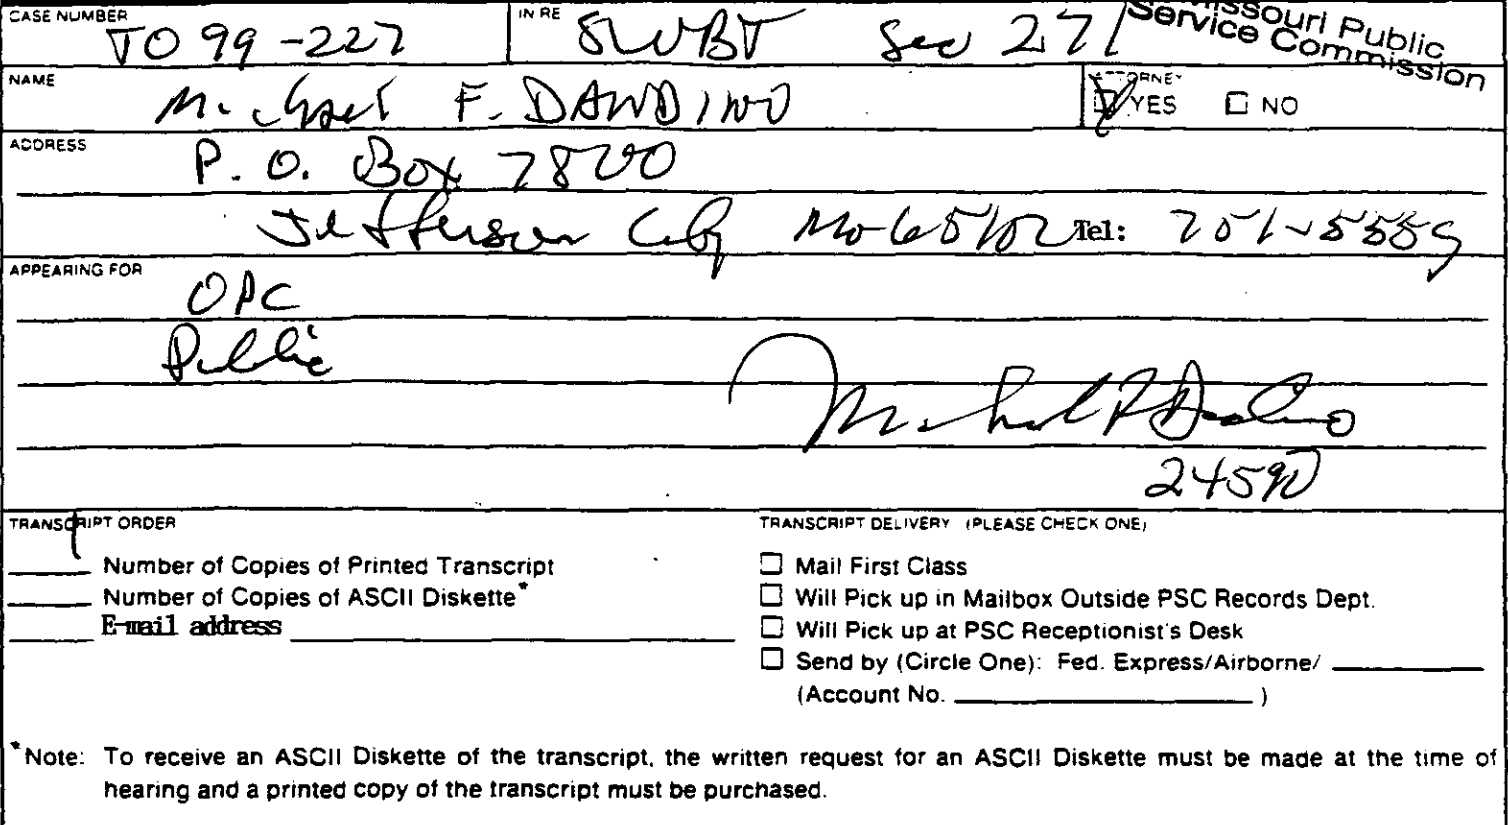 CASE NUMBER TO 99-227 IN RE SWBT Sec 271
Missouri Public
Service Commission
NAME Michael F. DANDINO ATTORNEY YES NO
ADDRESS P. O. Box 7800
Jefferson City Mo 65102 Tel: 751-5559
APPEARING FOR
OPC
Public
Michael F Dandino
24590
TRANSCRIPT ORDER
1 Number of Copies of Printed Transcript
Number of Copies of ASCII Diskette*
E-mail address
TRANSCRIPT DELIVERY (PLEASE CHECK ONE)
Mail First Class
Will Pick up in Mailbox Outside PSC Records Dept.
Will Pick up at PSC Receptionist's Desk
Send by (Circle One): Fed. Express/Airborne/
(Account No. )
*Note: To receive an ASCII Diskette of the transcript, the written request for an ASCII Diskette must be made at the time of
hearing and a printed copy of the transcript must be purchased.